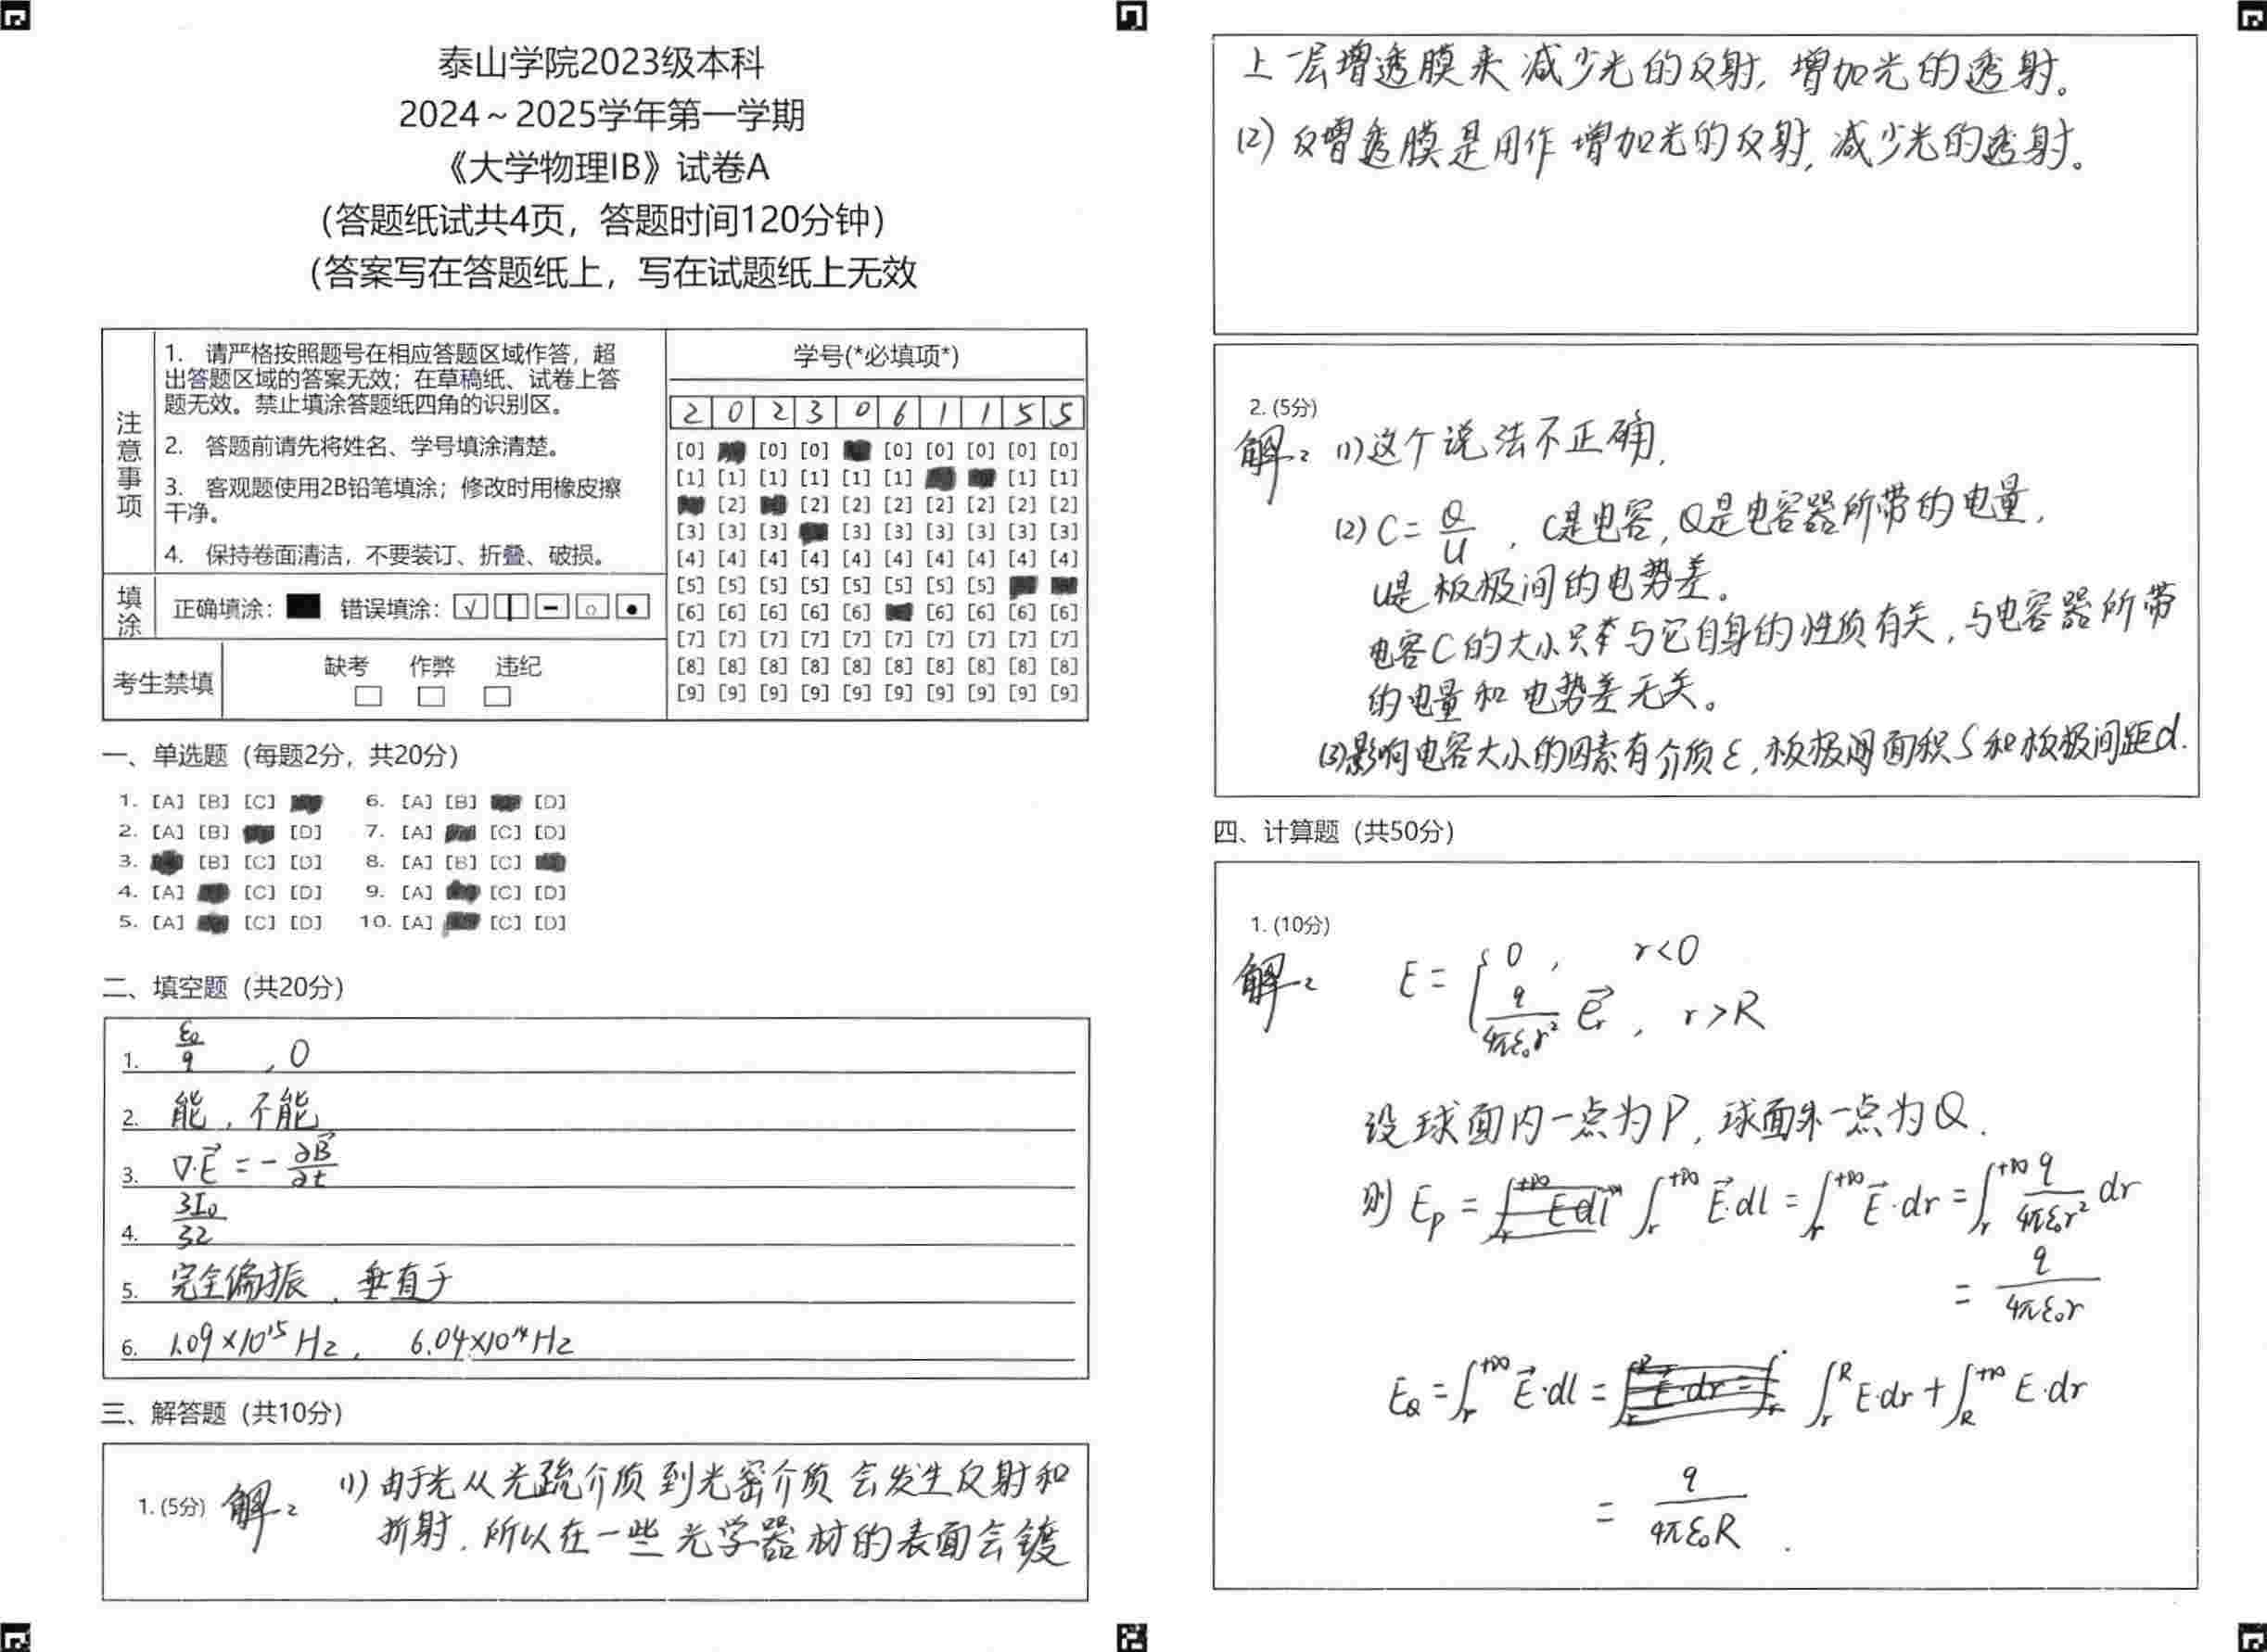 泰山学院2023级本科
2024～2025学年第一学期
《大学物理IB》试卷A
（答题纸试共4页，答题时间120分钟）
（答案写在答题纸上，写在试题纸上无效
注意事项
1. 请严格按照题号在相应答题区域作答，超
出答题区域的答案无效；在草稿纸、试卷上答
题无效。禁止填涂答题纸四角的识别区。
2. 答题前请先将姓名、学号填涂清楚。
3. 客观题使用2B铅笔填涂；修改时用橡皮擦
干净。
4. 保持卷面清洁，不要装订、折叠、破损。
填涂 正确填涂： 错误填涂：
考生禁填 缺考 作弊 违纪
学号(*必填项*)
2 0 2 3 0 6 1 1 5 5
[0] [0] [0] [0] [0] [0] [0] [0]
[1] [1] [1] [1] [1] [1] [1] [1]
[2] [2] [2] [2] [2] [2] [2] [2]
[3] [3] [3] [3] [3] [3] [3] [3] [3]
[4] [4] [4] [4] [4] [4] [4] [4] [4] [4]
[5] [5] [5] [5] [5] [5] [5] [5]
[6] [6] [6] [6] [6] [6] [6] [6] [6]
[7] [7] [7] [7] [7] [7] [7] [7] [7] [7]
[8] [8] [8] [8] [8] [8] [8] [8] [8] [8]
[9] [9] [9] [9] [9] [9] [9] [9] [9] [9]
一、单选题（每题2分，共20分）
1. [A] [B] [C] 6. [A] [B] [D]
2. [A] [B] [D] 7. [A] [C] [D]
3. [B] [C] [D] 8. [A] [B] [C]
4. [A] [C] [D] 9. [A] [C] [D]
5. [A] [C] [D] 10. [A] [C] [D]
二、填空题（共20分）
1. ε₀/q , 0
2. 能，不能
3. ∇·E⃗ = -∂B⃗/∂t
4. 3I₀/32
5. 完全偏振，垂直于
6. 1.09×10¹⁵Hz， 6.04×10¹⁴Hz
三、解答题（共10分）
1. (5分) 解： (1) 由于光从光疏介质到光密介质会发生反射和
折射，所以在一些光学器材的表面会镀
上一层增透膜来减少光的反射，增加光的透射。
(2) 反增透膜是用作增加光的反射，减少光的透射。
2. (5分)
解： (1) 这个说法不正确，
(2) C = Q/U ，C是电容，Q是电容器所带的电量，
U是板极间的电势差。
电容C的大小只与它自身的性质有关，与电容器所带
的电量和电势差无关。
(3)影响电容大小的因素有介质ε，板极间面积S和板极间距d.
四、计算题（共50分）
1. (10分)
解： E = { 0 , r<0
q/4πε₀r² e⃗r , r>R
设球面内一点为P，球面外一点为Q.
则 Ep = ∫r+∞ E⃗·dl = ∫r+∞ E⃗·dr = ∫r+∞ q/4πε₀r² dr
= q/4πε₀r
EQ = ∫r+∞ E⃗·dl = ∫rR E·dr + ∫R+∞ E·dr
= q/4πε₀R .